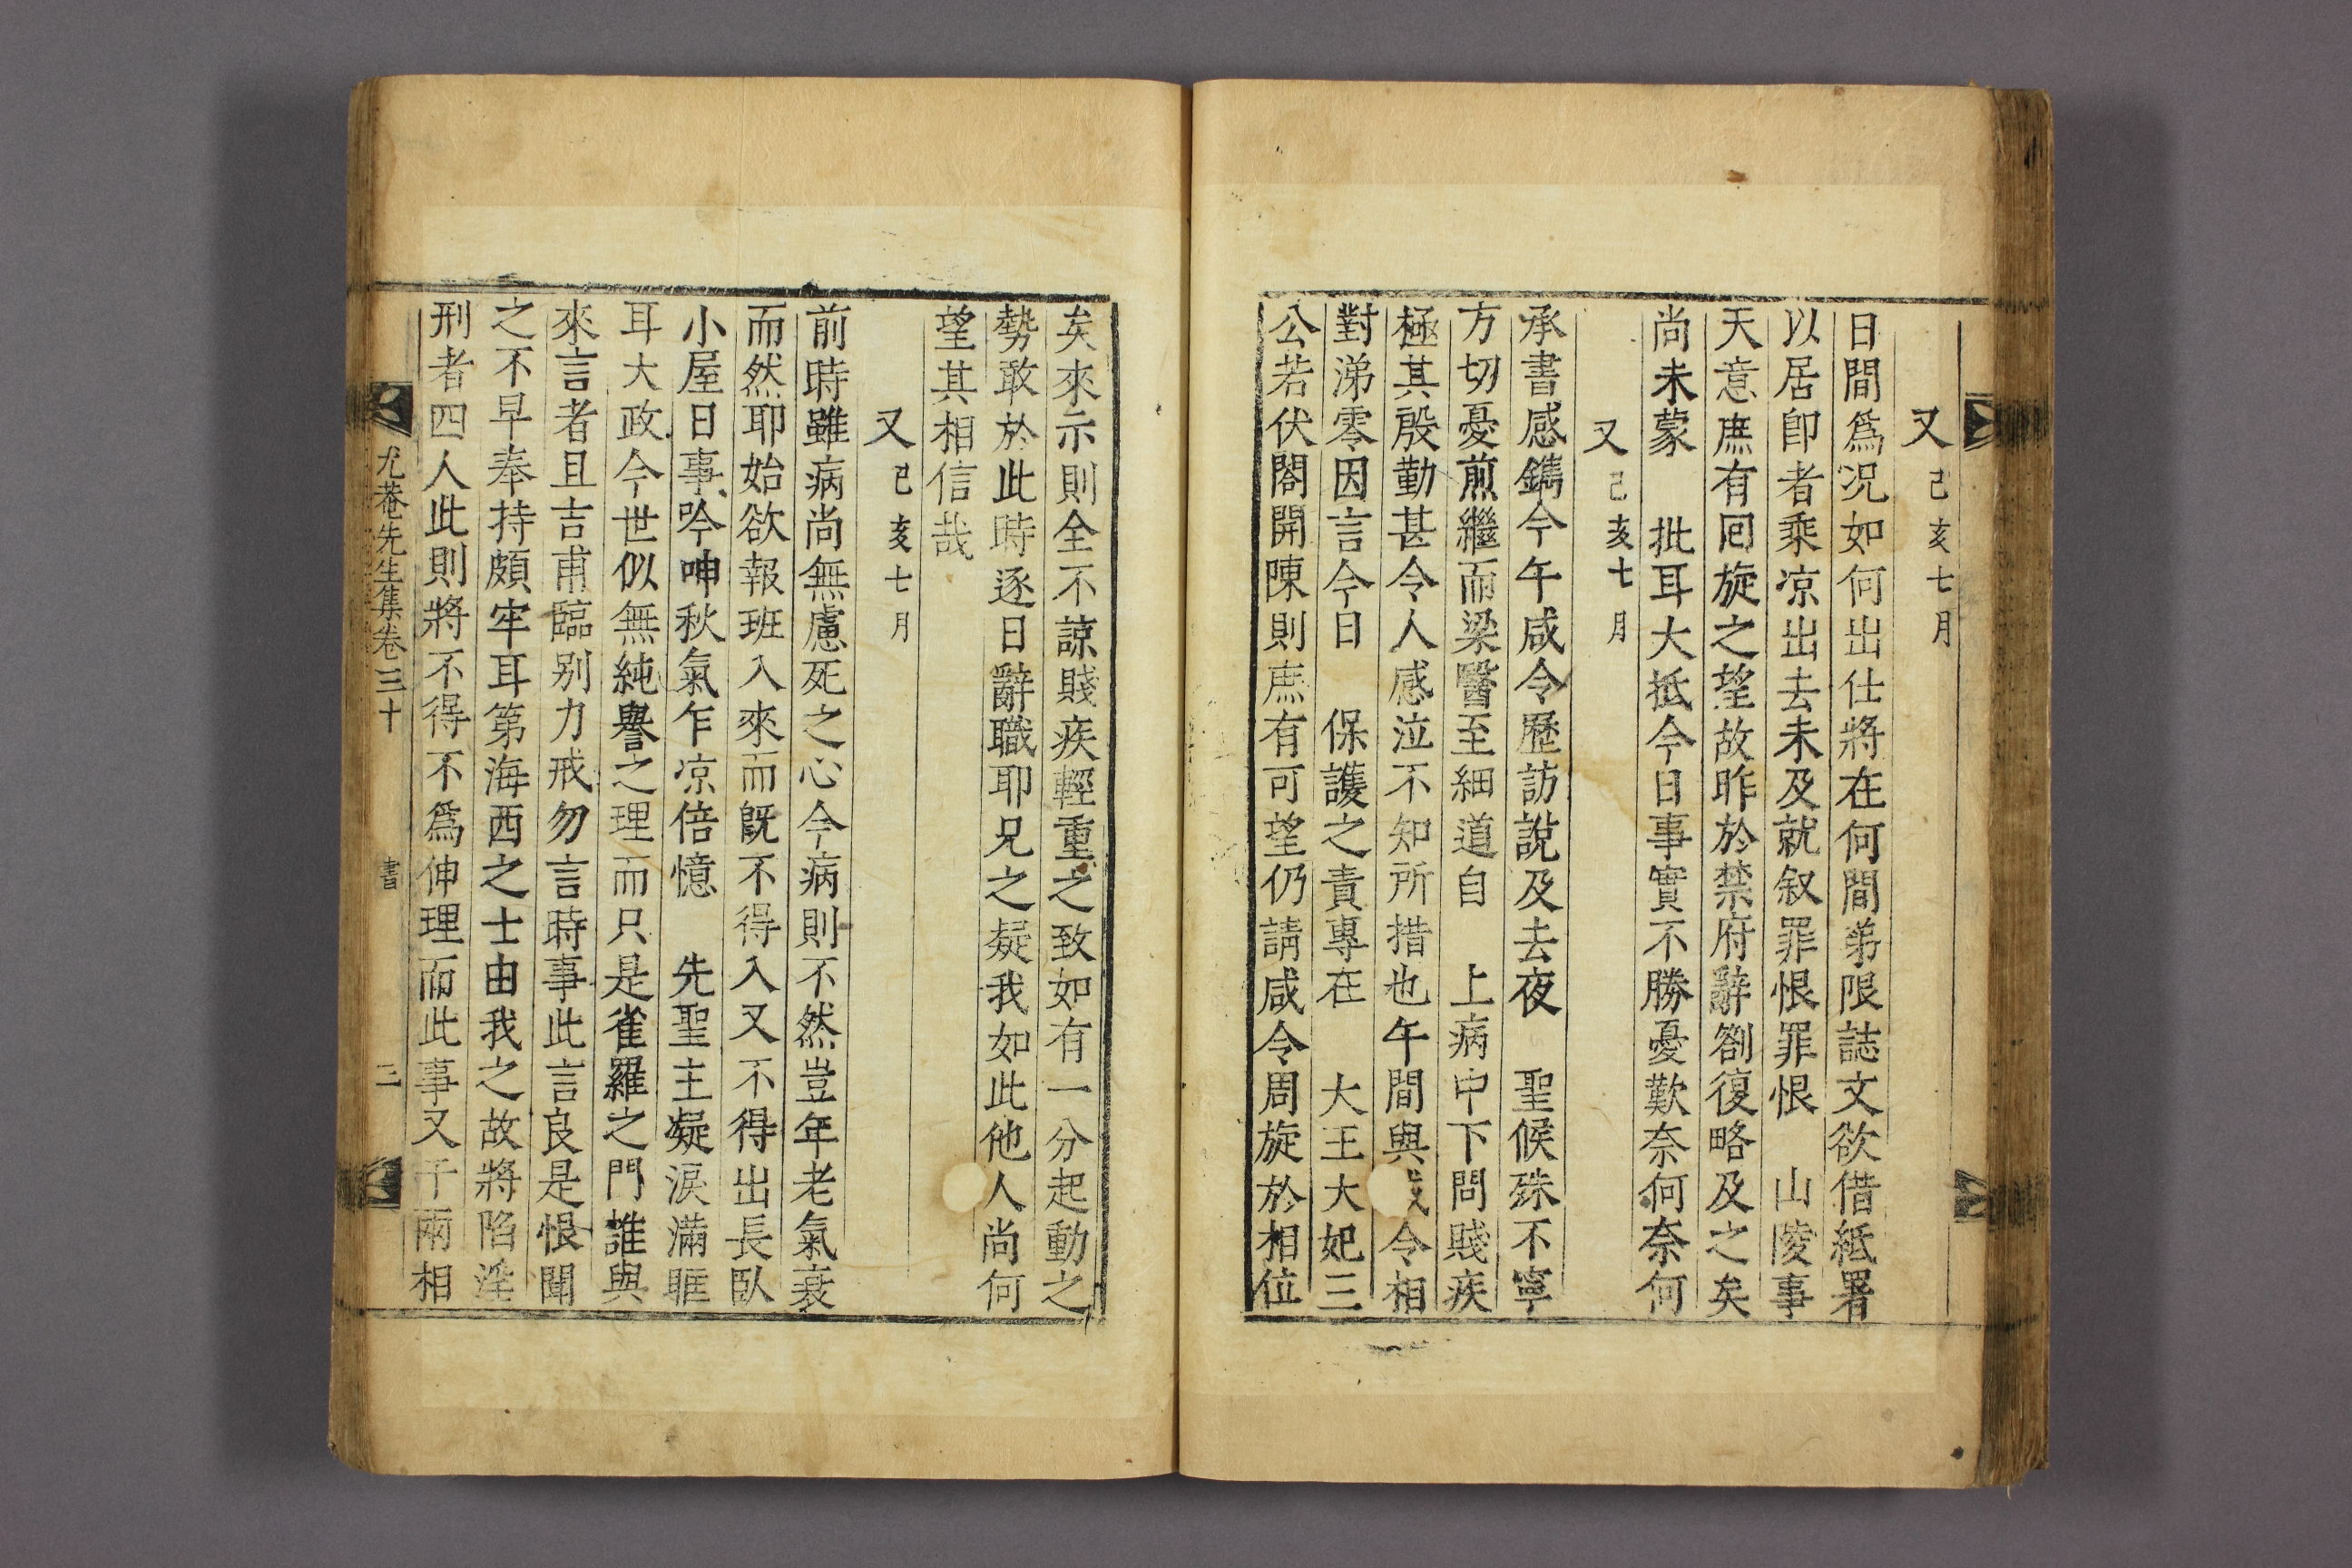 又 己亥七月
日間爲况如何出仕將在何間弟限誌文欲借紙署
以居卽者乘凉出去未及就叙罪恨罪恨 山陵事
天意庶有回旋之望故昨於禁府辭劄復略及之矣
尚未蒙 批耳大抵今日事實不勝憂歎奈何奈何
又 己亥七月
承書感鐫今午咸令歷訪說及去夜 聖候殊不寧
方切憂煎繼而梁醫至細道自 上病中下問賤疾
極其殷勤甚令人感泣不知所措也午間與 令相
對涕零因言今日 保護之責專在 大王大妃三
公若伏閤開陳則庶有可望仍請咸令周旋於相位
矣來示則全不諒賤疾輕重之致如有一分起動之
勢敢於此時逐日辭職耶兄之疑我如此他人尚何
望其相信哉
又 己亥七月
前時雖病尚無慮死之心今病則不然豈年老氣衰
而然耶始欲報班入來而旣不得入又不得出長臥
小屋日事吟呻秋氣乍凉倍憶 先聖主凝淚滿眶
耳大政今世似無純譽之理而只是雀羅之門誰與
來言者且吉甫臨别力戒勿言時事此言良是恨聞
之不早奉持頗牢耳第海西之士由我之故將陷淫
刑者四人此則將不得不爲伸理而此事又于兩相
尤菴先生集卷三十 書 三